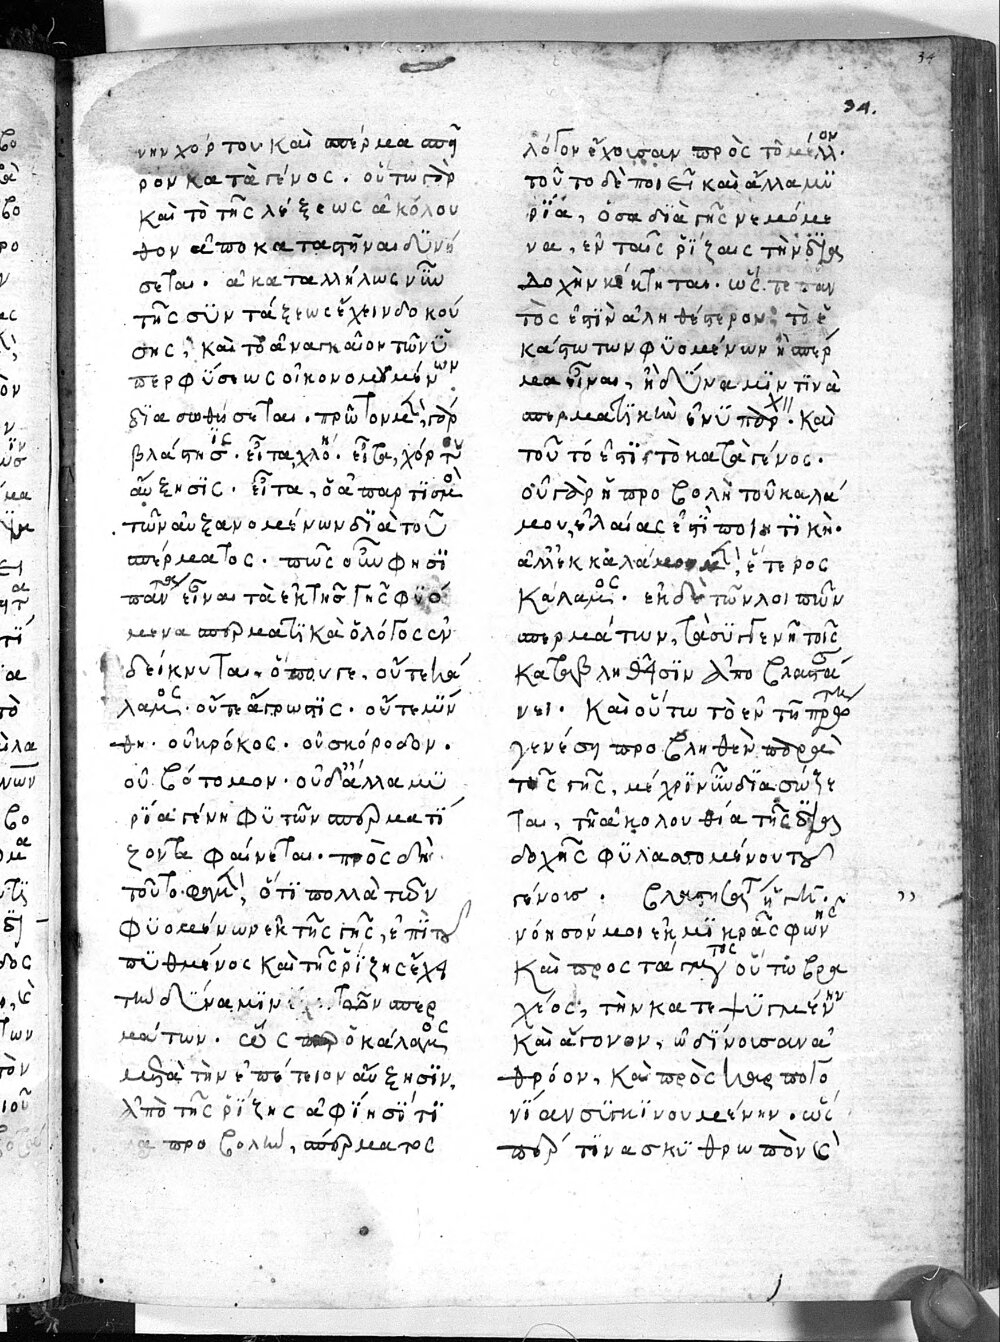 νην χόρτου καὶ σπέρμα σπεῖ
ρον κατὰ γένος. οὕτω γὰρ
καὶ τὸ τῆς λέξεως ἀκόλου
θον ἀποκαταστῆναι δυνή
σεται. ἀκαταλλήλως νῦν
τῆς συντάξεως ἔχειν δοκού
σης, καὶ τὸ ἀναγκαῖον τῶν ὑ
περ φύσεως οἰκονομουμένων
διασωθήσεται. πρῶτον μὲν γὰρ
βλάστησις. εἶτα χλόη. εἶτα χόρτου
αὔξησις. εἶτα, ὁ ἀπαρτισμὸς
τῶν αὐξανομένων διὰ τοῦ
σπέρματος. πῶς οὖν φησὶ
πάντα εἶναι τὰ ἐκ τῆς γῆς φυό
μενα σπερματικὰ ὁ λόγος ἐν
δείκνυται. ὅπου γε. οὔτε κά
λαμος. οὔτε ἄγρωστις. οὔτε μίν
θη. οὐ κρόκος. οὐ σκόροδον.
οὐ βότομον. οὐδ' ἄλλα μυ
ρία γένη φυτῶν σπερματί
ζοντα φαίνεται. πρὸς δὴ
τοῦτο φαμὲν, ὅτι πολλὰ τῶν
φυομένων ἐκ τῆς γῆς, ἐπὶ τοῦ
πυθμένος καὶ τῆς ῥίζης ἔχει
τὴν δύναμιν τῶν σπερ
μάτων. ὡς ὁ κάλαμος
μετὰ τὴν ἐπέτειον αὔξησιν,
ἀπὸ τῆς ῥίζης ἀφίησί τι
να προβολὴν, σπέρματος
λόγον ἔχουσαν πρὸς τὸ μέλλον.
τοῦτο δὲ ποιεῖ καὶ ἄλλα μυ
ρία, ὅσα διὰ γῆς νεμόμε
να, ἐν ταῖς ῥίζαις τὴν δια
δοχὴν κέκτηται. ὥστε παν
τὸς ἐστὶν ἀληθέστερον, τὸ ἑ
κάστω τῶν φυομένων ἢ σπέρ
μα εἶναι, ἢ δύναμιν τινὰ
σπερματικὴν ἐνυπάρχειν. καὶ
τοῦτό ἐστι τὸ κατὰ γένος.
οὐ γὰρ ἡ προβολὴ τοῦ καλά
μου, ἐλαίας ἐστὶ ποιητική.
ἀλλ' ἐκ καλάμου μὲν, ἕτερος
κάλαμος. ἐκ δὲ τῶν λοιπῶν
σπερμάτων, τὰ συγγενῆ τοῖς
καταβληθεῖσιν ἀποβλαστά
νει. καὶ οὕτω τὸ ἐν τῇ πρώτη
γενέση προβληθὲν παρὰ
τῆς γῆς, μέχρι νῦν διασώζε
ται, τῇ ἀκολουθία τῆς δια
δοχῆς φυλασσομένου τοῦ
γένους. βλαστησάτω ἡ γῆ.
νόησόν μοι ἐκ μικρᾶς φωνῆς
καὶ προστάγματος οὕτω βρα
χέος, τὴν κατεψυγμένην
καὶ ἄγονον, ὠδίνουσαν ἀ
θρόον, καὶ πρὸς καρπογο
νίαν συγκινουμένην. ὡς
περ τινα σκυθρωπὸν καὶ
34.
34